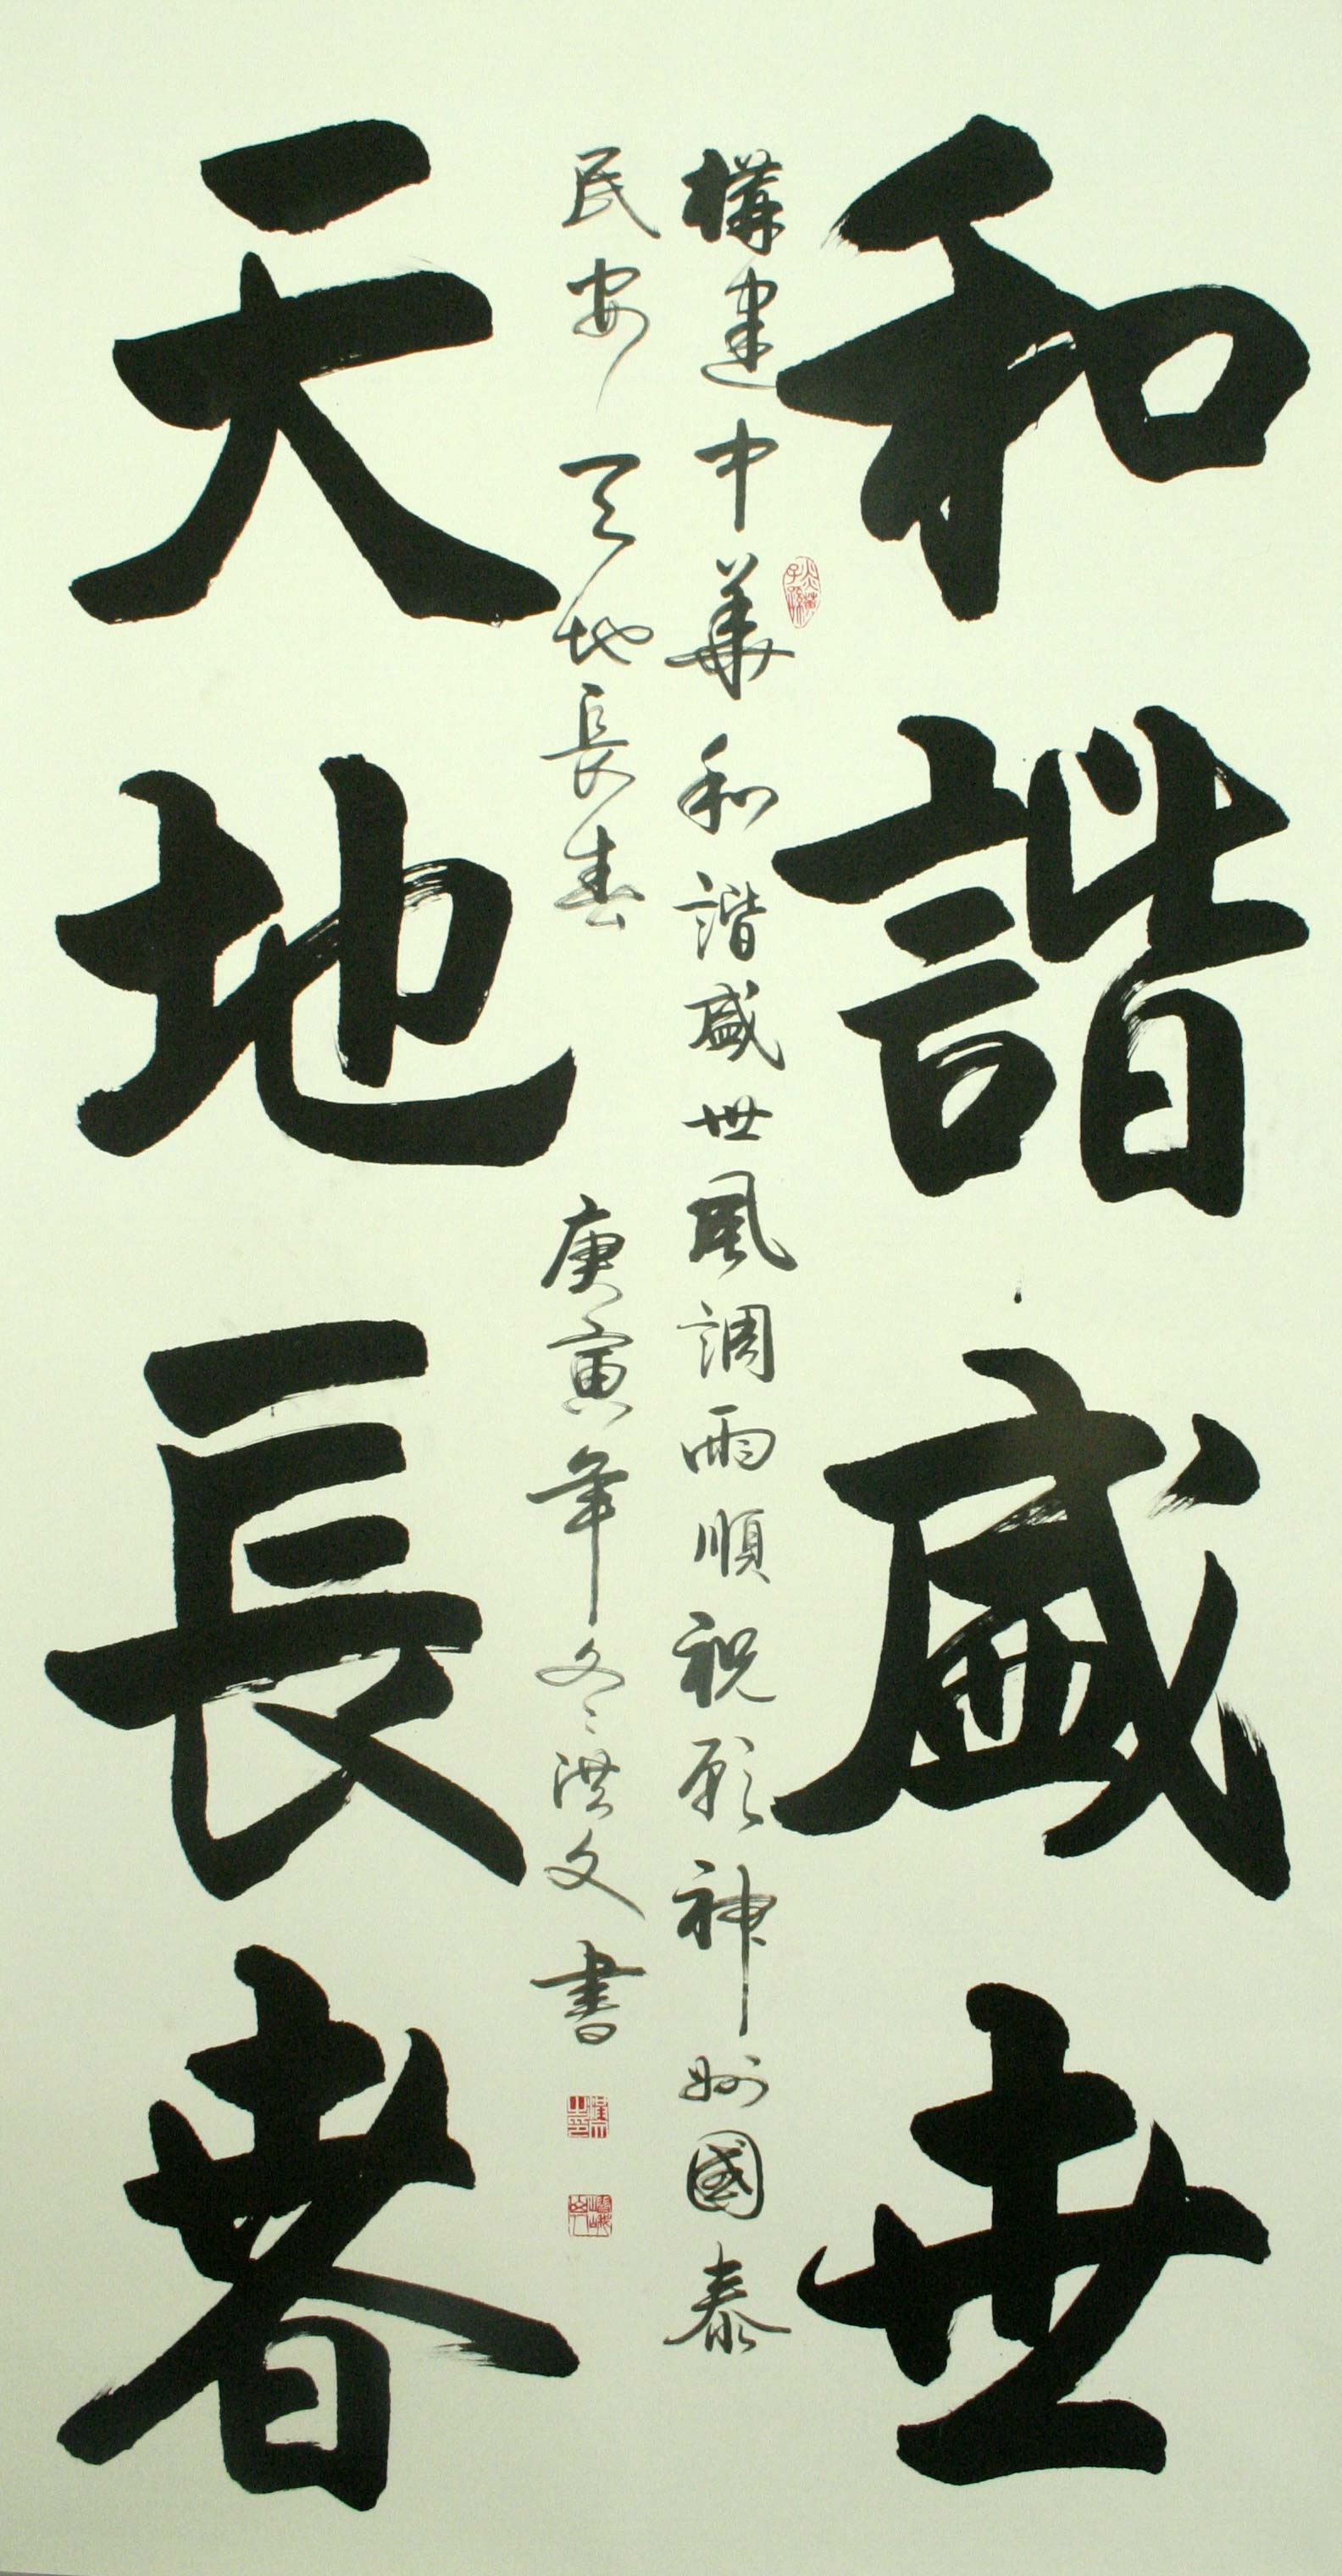 和諧盛世
構建中華和諧盛世風調雨順祝願神州國泰
民安天地長春 庚寅年冬洪文書
天地長春